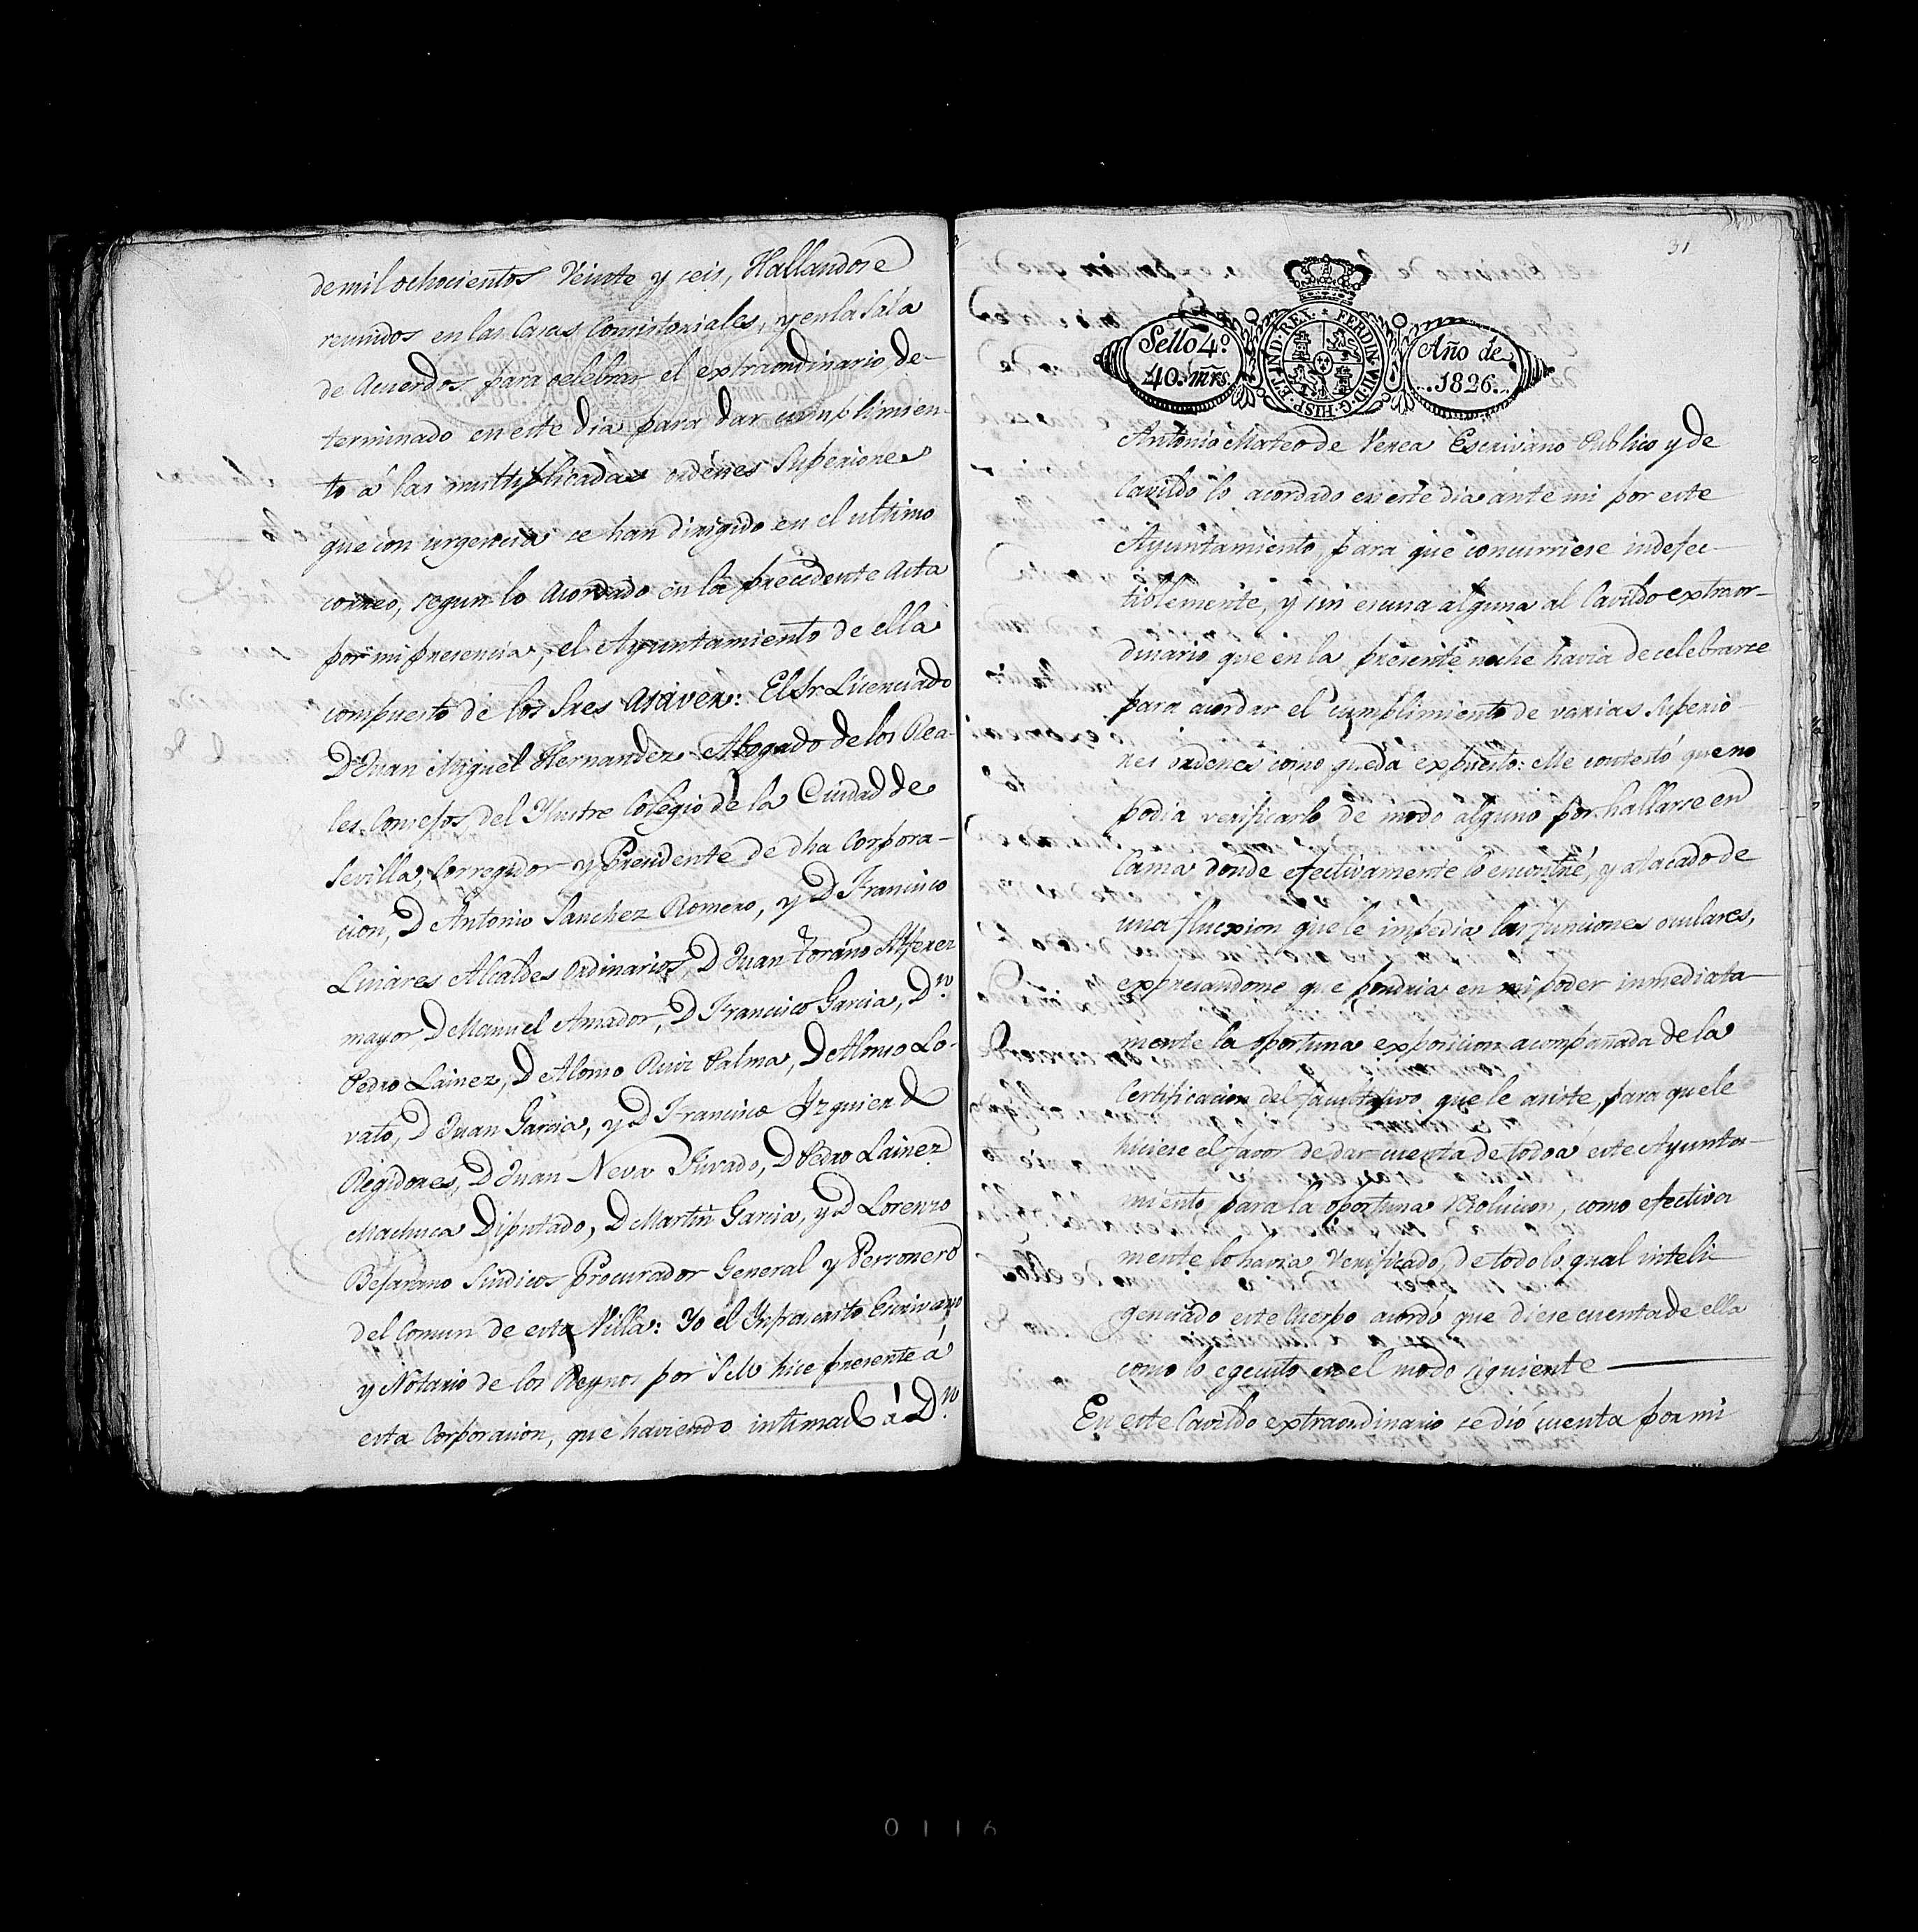 de mil ochocientos Veinte y seis, Hallandose
reunidos en las Casas Consistoriales, y en la Sala
de Acuerdos para celebrar el extraordinario, de-
terminado en este dia para dar cumplimien-
to á las multiplicadas ordenes Superiores
que con urgencia se han dirigido en el ultimo
correo, segun lo acordado en la precedente Acta
por mi presencia, el Ayuntamiento de ella
compuesto de los Sres asaver: El Sr. Licenciado
D Juan Miguel Hernandez Abogado de los Rea-
les Consejos del Ylustre Colegio de la Ciudad de
Sevilla, Corregidor y Presidente de dha Corpora-
cion, D Antonio Sanchez Romero, y D Francisco
Linares Alcaldes Ordinarios, D Juan Toraño Alferez
mayor, D Manuel Amador, D Francisco Garcia, D.n
Pedro Lainez, D Alonso Ruiz Palma, D Alonso Lo-
vato, D Juan Garcia, y D Francisco Yzquierdo
Regidores, D Juan Neva Jurado, D Pedro Lainez
Machuca Diputado, D Martin Garcia, y D Lorenzo
Bejarano Sindicos Procurador General y Personero
del Comun de esta Villa: Yo el Ynfraescrito Escrivano
y Notario de los Reynos por S M hice presente á
esta Corporacion, que haviendo intimado á D.n
31
Sello 4.º
40. mrs.
FERDIN. VII. D. G. HISP. ET. IND. REX.
Año de
1826.
Antonio Mateo de Verea Escrivano Publico y de
Cavildo lo acordado en este dia ante mi por este
Ayuntamiento, para que concurriese indefec-
tiblemente, y sin escusa alguna al Cavildo extraor-
dinario que en la presente noche havia de celebrarse
para acordar el cumplimiento de varias Superio-
res ordenes como queda expuesto: Me contestó que no
podia verificarlo de modo alguno por hallarse en
Cama donde efectivamente lo encontré, y atacado de
una fluxion que le impedia las funciones oculares,
expresandome que pondria en mi poder inmediata-
mente la oportuna exposicion acompañada de la
Certificacion del facultativo que le asiste, para que le
hiciese el favor de dar cuenta de todo a este Ayunta-
miento para la oportuna resolucion, como efectiva
mente lo havia Verificado, de todo lo qual inteli
genciado este Cuerpo acordó que diese cuenta de ella
como lo egecuto en el modo siguiente
En este Cavildo extraordinario se dió cuenta por mi
0116